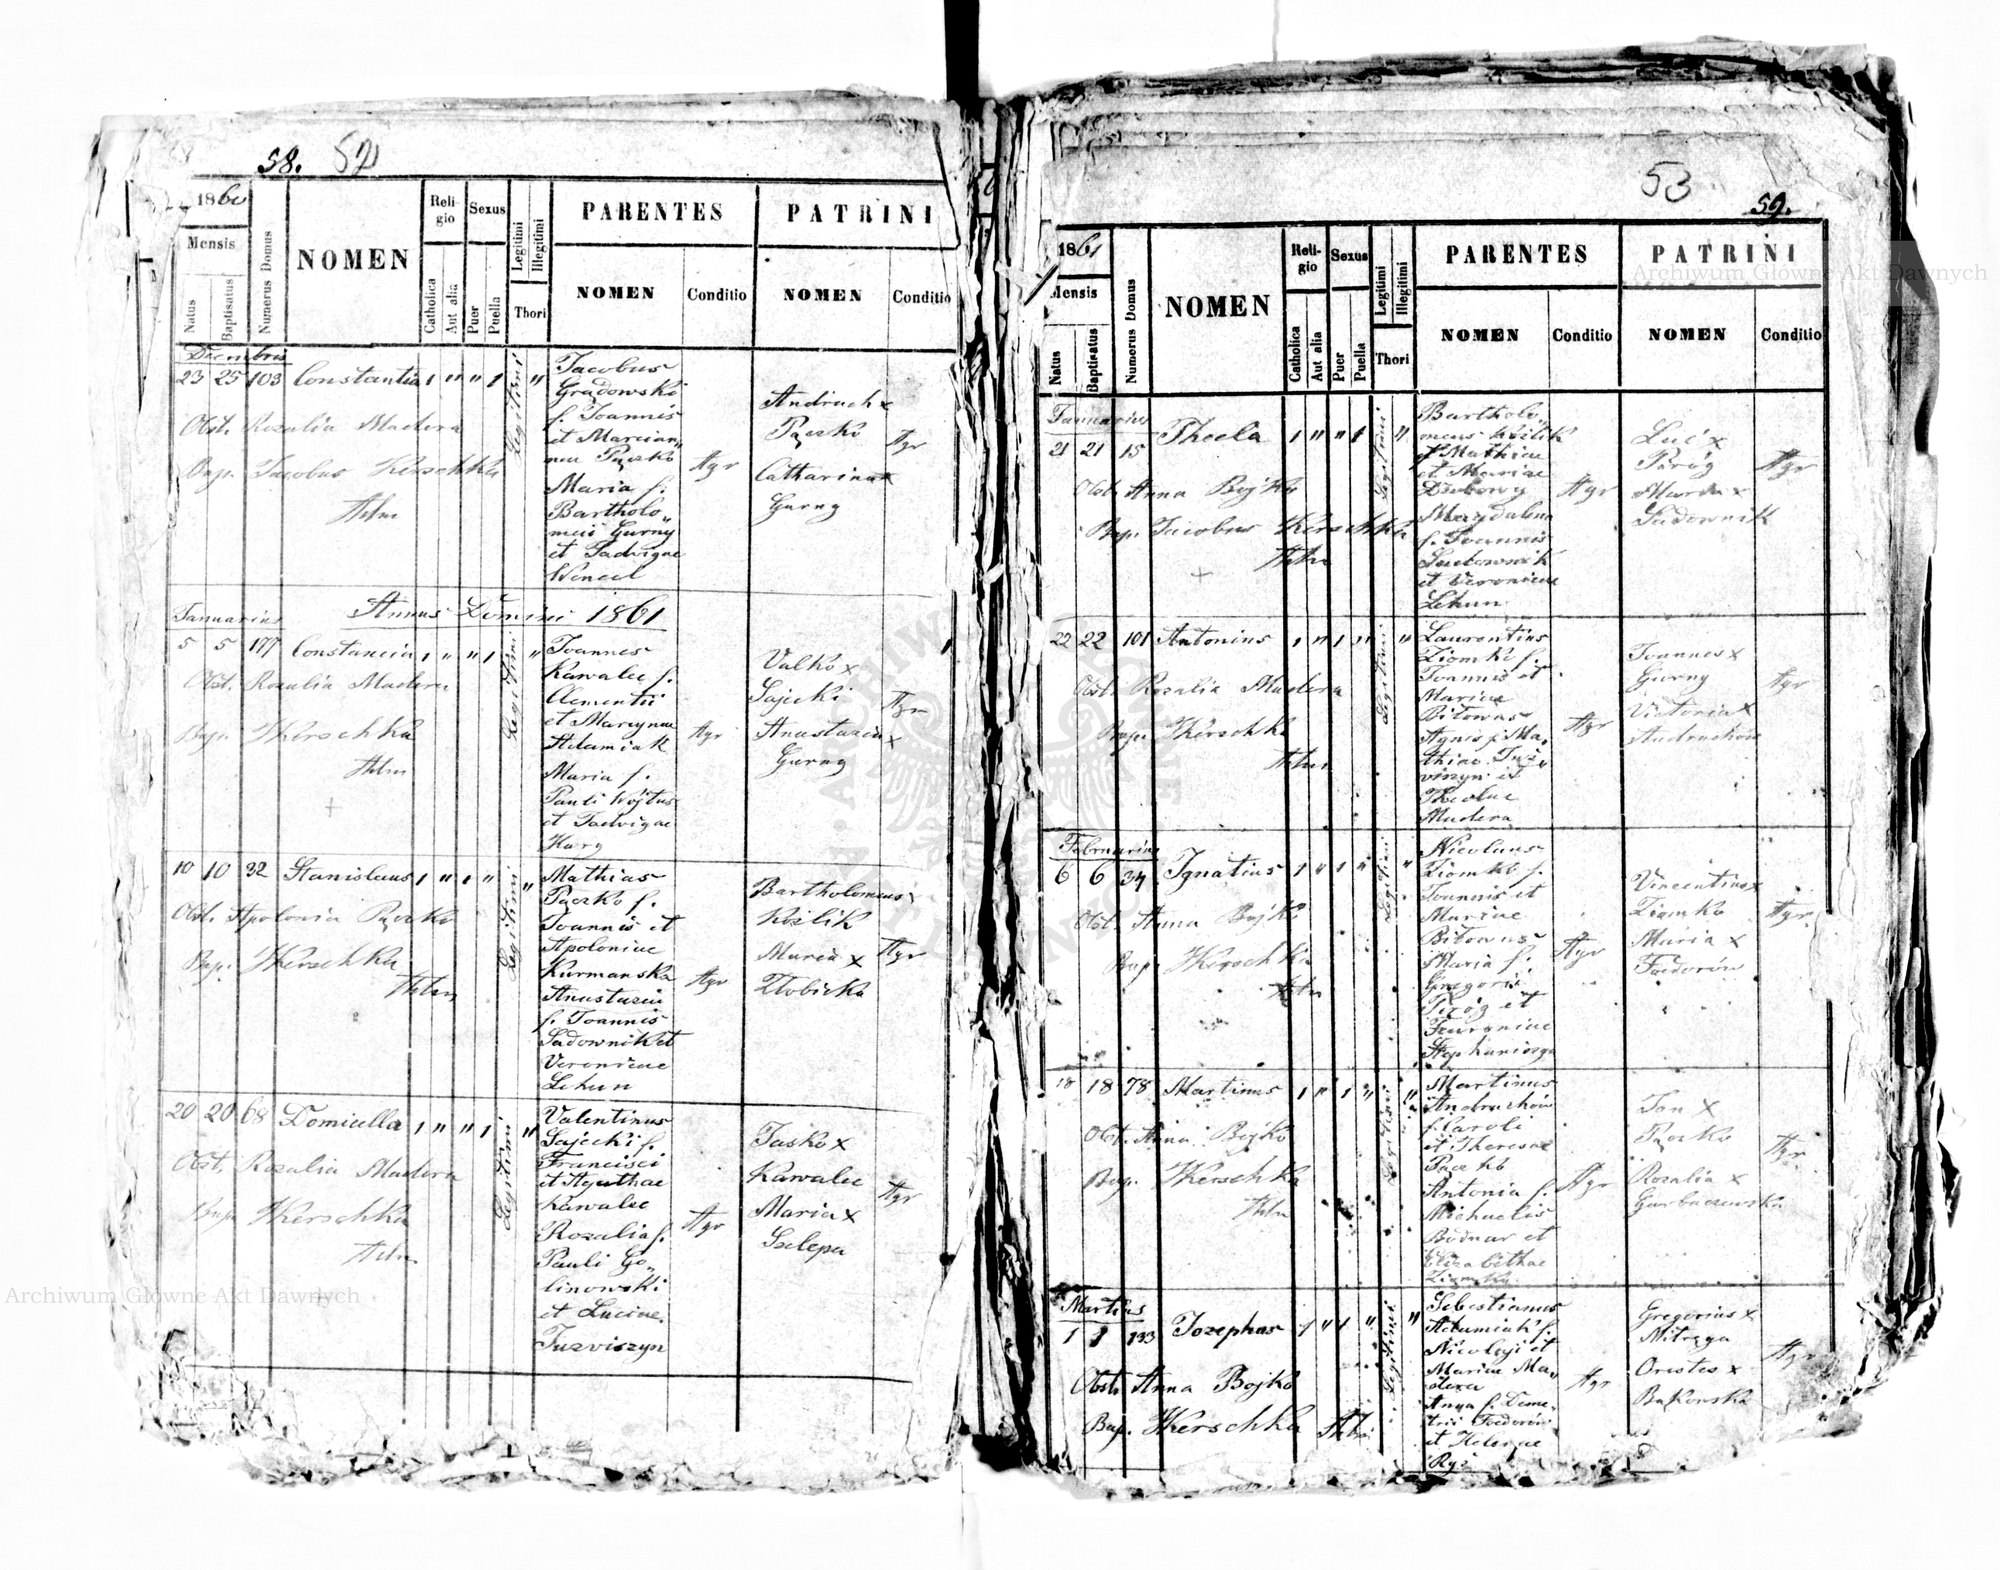 58. 52
1860
Mensis
Natus
Baptisatus
Numerus Domus
NOMEN
Reli-
gio
Catholica
Aut alia
Sexus
Puer
Puella
Legitimi
Illegitimi
Thori
PARENTES
NOMEN
Conditio
PATRINI
NOMEN
Conditio
Decembris
23 25 103 Constantia 1 " " 1 Legitimi "
Obst. Rozalia Madera
Bap. Jacobus Kerschka
Adm
Jacobus
Gradowski
f. Joannis
et Marian
nae Pączko
Maria f.
Bartholo„
meii Gurny
et Jadvigae
Agr
Andruch x
Pączko
Catharina x
Gurny
Agr
Januarius Annus Domini 1861
5 5 177 Constancia 1 " " 1 Legitimi "
Obst. Rozalia Madera
Bap. JKerschka
Adm
Joannes
Kawalec f.
Clementii
et Marynae
Adamiak
Maria f.
Pauli Wojtus
et Jadvigae
Agr
Valko x
Sajecki
Anastazia x
Gurny
Agr
10 10 32 Stanislaus 1 " 1 " Legitimi "
Obst. Apolonia Pączko
Bap. JKerschka
Adm
Mathias
Pączko f.
Joannis et
Apoloniae
Kurmanska
Anastazia
f. Joannis
Sadownik et
Veronicae
Lehun
Agr
Bartholomeus x
Kozlik
Maria x
Ztobicka
Agr
20 20 68 Domicella 1 " " 1 Legitimi "
Obst. Rozalia Madera
Bap. JKerschka
Adm
Valentinus
Sajecki f.
Francisci
et Agathae
Kawalec
Rozalia f.
Pauli Go„
linowski
et Luciae
Juzviszyn
Agr
Jasko x
Kawalec
Maria x
Szelepa
Agr
53
59.
1861
Mensis
Natus
Baptisatus
Numerus Domus
NOMEN
Reli-
gio
Catholica
Aut alia
Sexus
Puer
Puella
Legitimi
Illegitimi
Thori
PARENTES
NOMEN
Conditio
PATRINI
NOMEN
Conditio
Januarius
21 21 15 Thecla 1 " " 1 Legitimi "
Obst. Anna Bojko
Bap. Jacobus Kerschka
Adm
Bartholo„
meus Kozlik
f. Mathiae
et Mariae
Magdalena
f. Joannis
Sadownik
et Veronicae
Lehun
Agr
Luć x
Piróg
Marda x
Sadownik
Agr
22 22 101 Antonius 1 " 1 " Legitimi "
Obst. Rozalia Madera
Bap. JKerschka
Adm
Laurentius
Ziomko f.
Joannis et
Mariae
Bitowus
Agnes f. Ma„
thiae Juz„
viszyn et
Theclae
Madera
Agr
Joannes x
Gurny
Victoria x
Andruchow
Agr
Februarius
6 6 34 Ignatius 1 " 1 " Legitimi "
Obst. Anna Bojko
Bap. JKerschka
Adm
Nicolaus
Ziomko f.
Joannis et
Mariae
Bitowus
Maria f.
Gregorii
Piróg et
Agr
Vincentius x
Ziomko
Maria x
Faedorów
Agr
18 18 78 Martinus 1 " 1 " Legitimi "
Obst. Anna Bojko
Bap. JKerschka
Adm
Martinus
Andruchów
f. Caroli
et Theresae
Paczko
Antonia f.
Michaelis
Bodnar et
Elizabethae
Ziomko
Agr
Jan x
Pączko
Rozalia x
Garbaczewska
Agr
Martius
1 1 133 Josephus 1 " 1 " Legitimi "
Obst. Anna Bojko
Bap. JKerschka Adm
Sebestianus
Adamiak f.
Nicolaji et
Mariae Ma„
dera
Anna f. Deme„
trii Foedorów
et Helenae
Ryś
Agr
Gregorius x
Mitręga
Orestes x
Bukowska
Agr
Archiwum Główne Akt Dawnych
Archiwum Główne Akt Dawnych